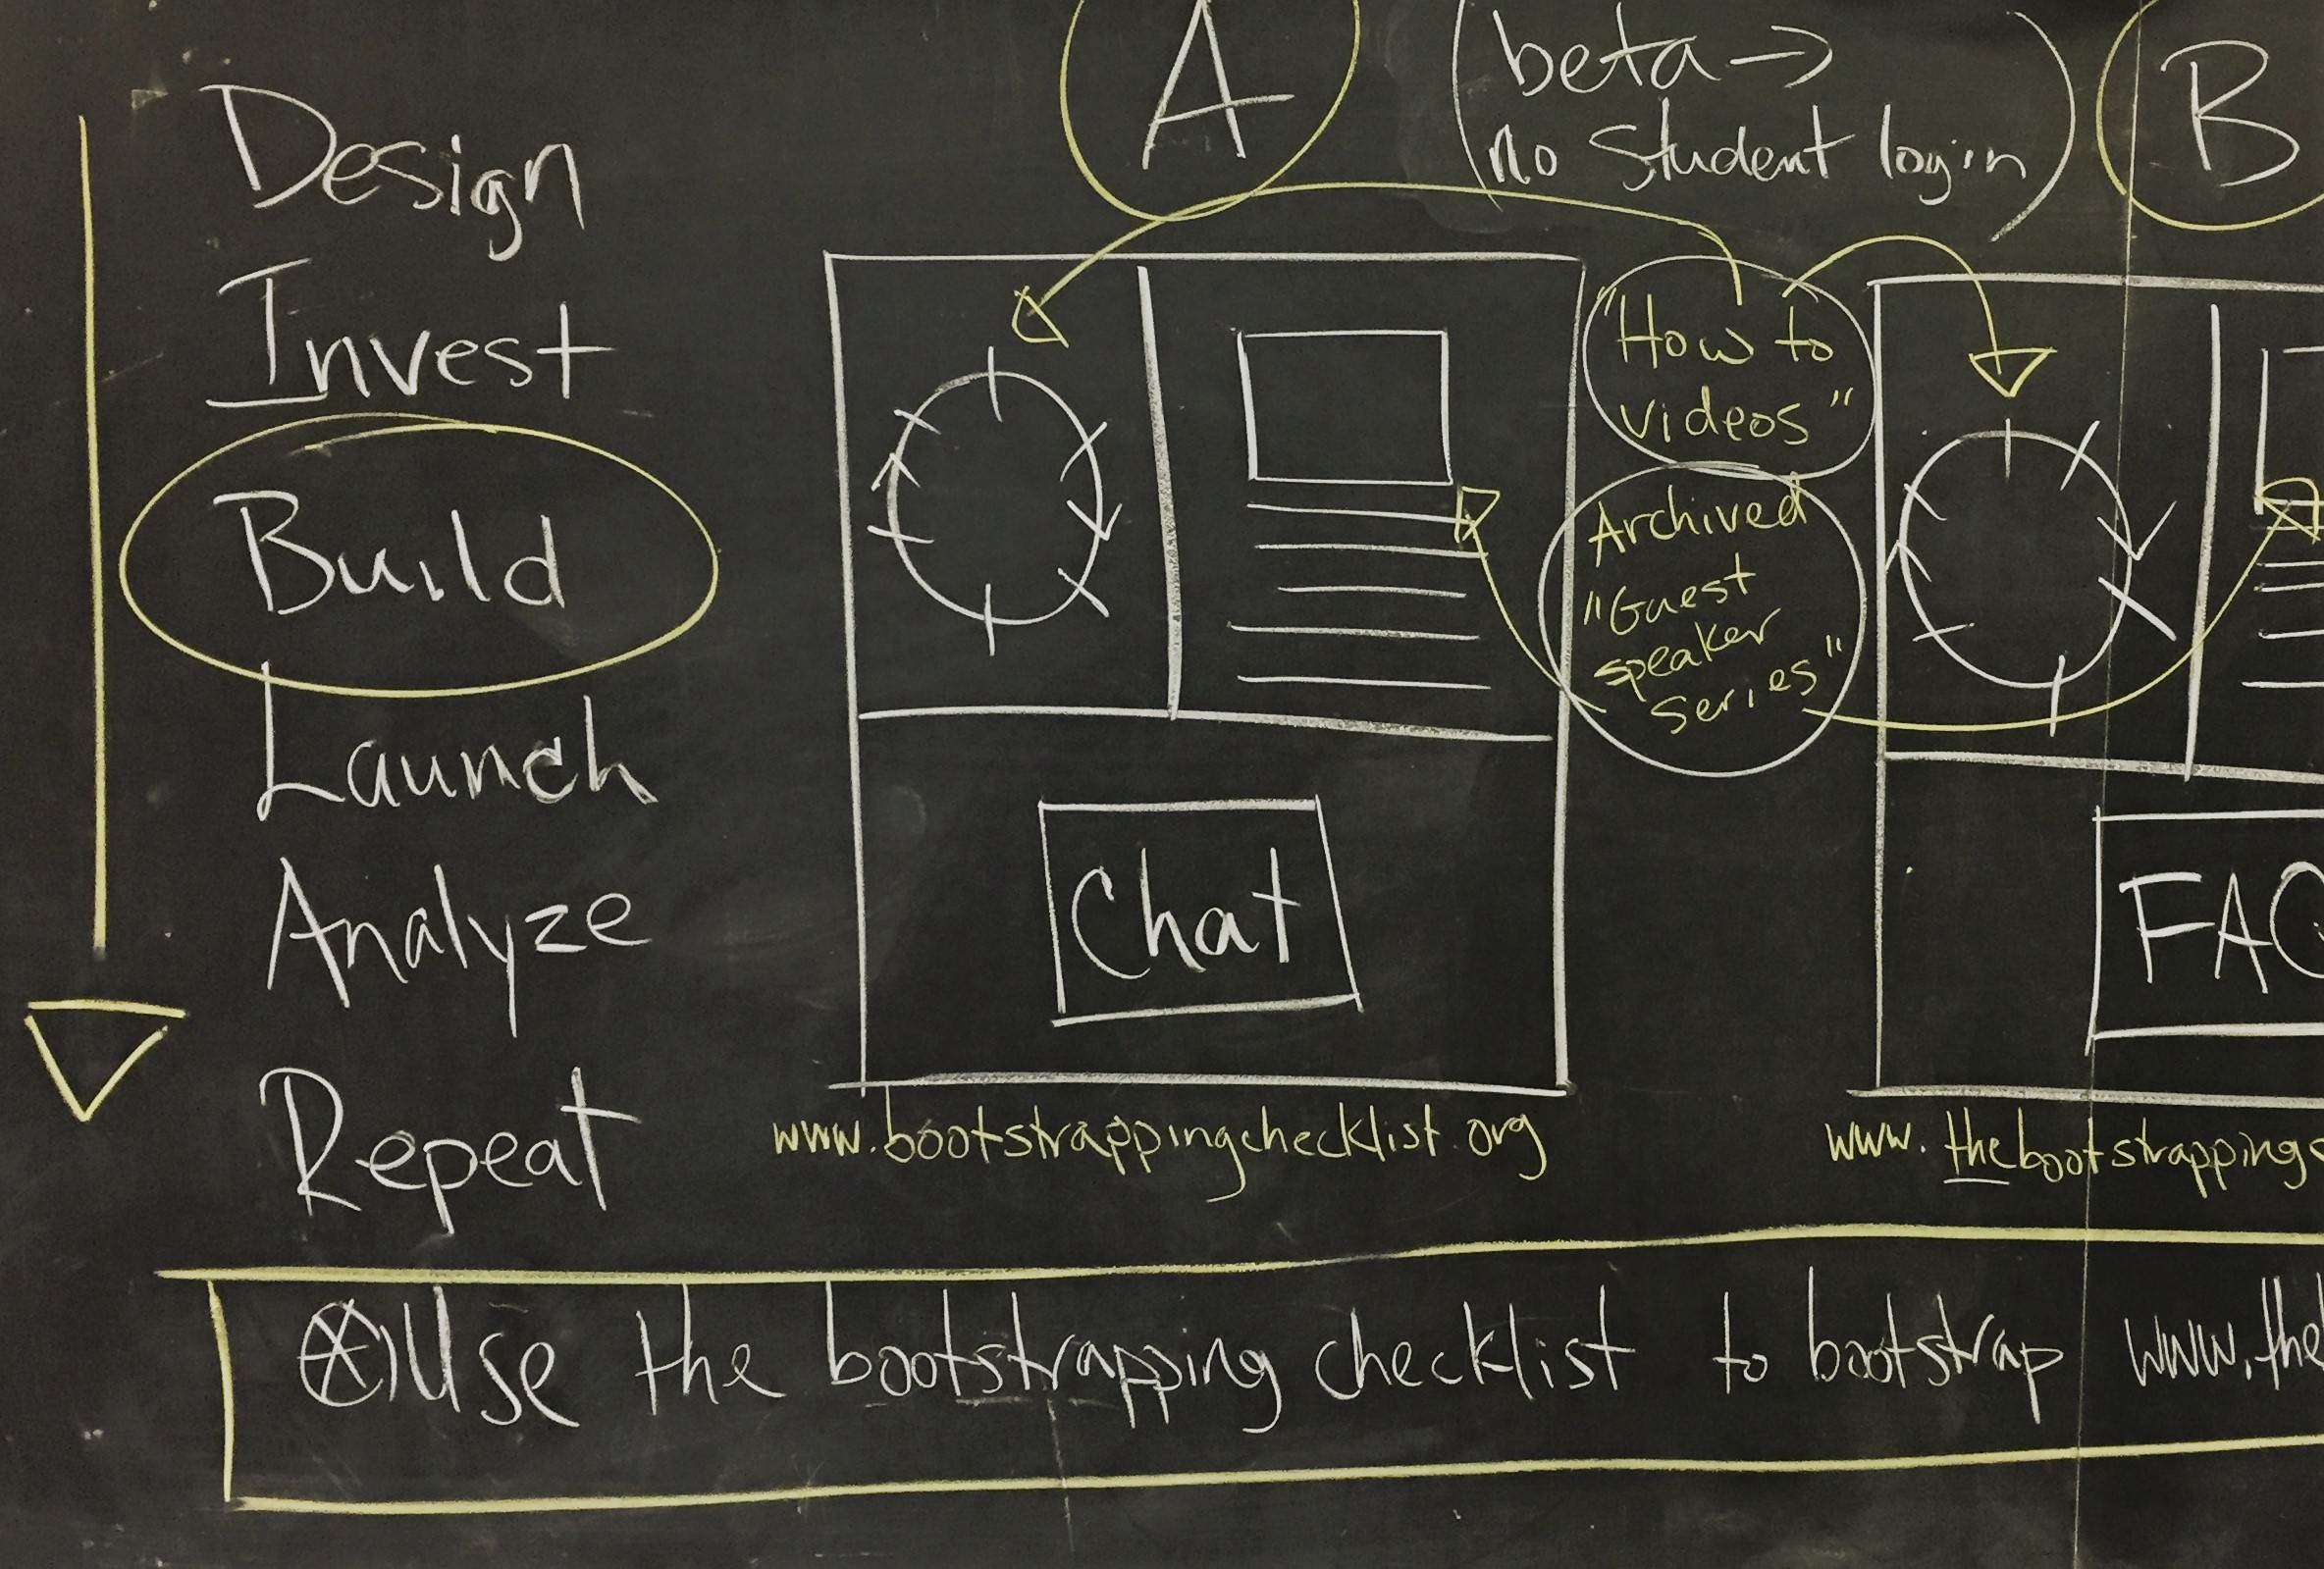 Design
Invest
Build
Launch
Analyze
Repeat
A
(beta →
no student login)
B
"How to
videos"
Archived
"Guest
speaker
series"
Chat
www.bootstrappingchecklist.org
FAQ
www.thebootstrapping
Use the bootstrapping checklist to bootstrap www.the